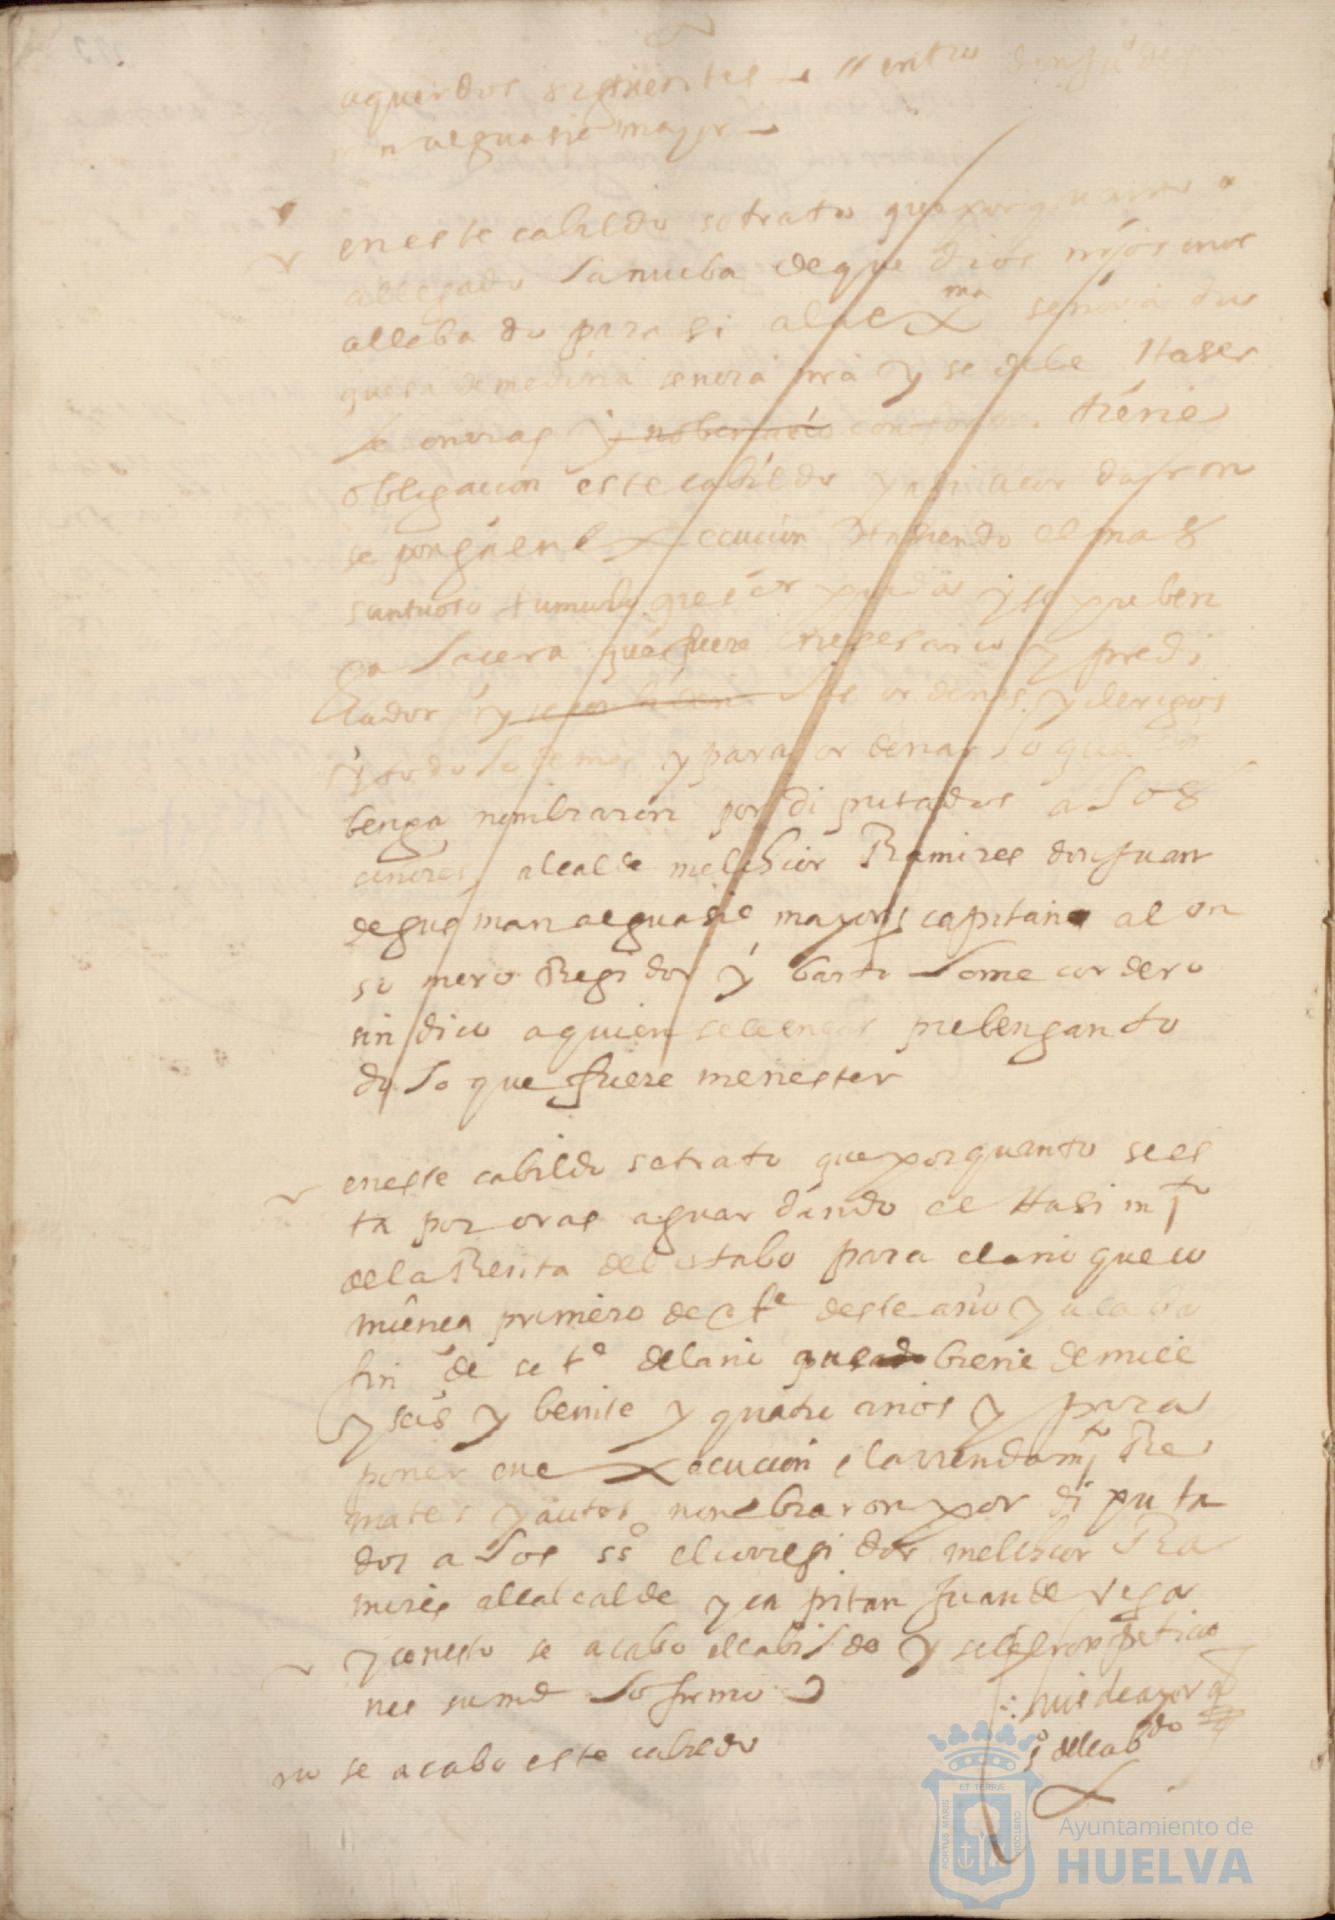 aquerdos siguientes entro don Ju.º de
alguasil mayor
en este cabildo se trato que por quanto a
allegado la nueba de que dios nro sr nos
allebado para si a la exma señora du
quesa de medina señora nra y se debe Haser
le onrras y tiene
obligacion este cabildo y asi acordaron
se ponga en execucion Hasiendo el mas
suntuoso tumulo que ser pueda y se preben
ga la cera que fuere nesesario y predi
cador y las ordenes y clerigos
y todo lo demas y para ordenar lo que
benga nombraron por diputados a los
señores alcalde melchior Ramires don Juan
de gusman alguasil mayor capitan alon
so mero Regidor y bartolome cordero
sindico a quien se le encar prebengan to
do lo que fuere menester
en este cabildo se trato que por quanto se es
ta por oras aguardando el Hasimto
de la Renta del estabo para el año que co
miença primero de
fin de set.º del año que biene de mill
y seis y beinte y quatro años y para
poner en execucion el arrendamto Re
mates y autos nonbraron por diputa
dos a los ss.º el corregidor melchior Ra
mires alcalde y capitan Juan de vega
y con esto se acabo el cabildo y se leyeron petitio
nes su md lo firmo
luis de
s.º del cabdo
no se acabo este cabildo
ET TERRÆ
PORTUS MARIS
CUSTODIA
Ayuntamiento de
HUELVA